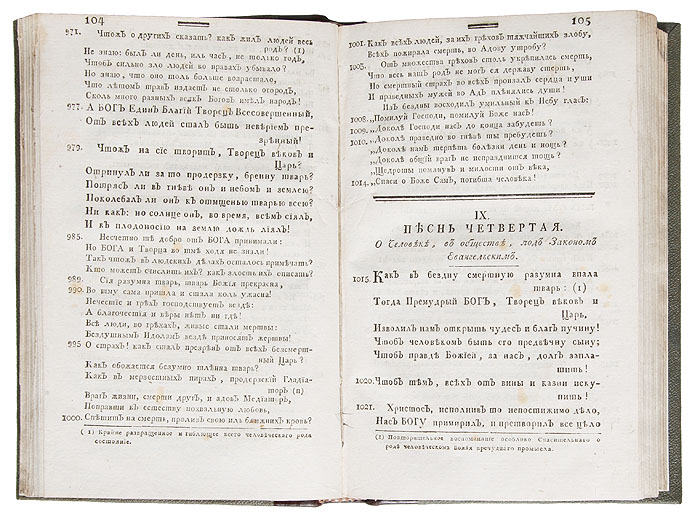 104
971. Чтожъ о другихъ сказать? какъ жилъ людей весь
родъ? (1)
Не знаю: былъ ли день, иль часъ, не только годъ,
Чтобъ сильно зло людей во нравахъ убывало?
Но знаю, что оно толь больше возрастало,
Что лѣтомъ травъ издаетъ не столько огородъ,
Сколь много разныхъ всякъ Боговъ имѣлъ народъ!
977. А БОГЪ Единъ Благій Творецъ Всесовершенный,
Отъ всѣхъ людей сталъ быть невѣріемъ пре-
зрѣнный!
979. Чтожъ на сіе творитъ, Творецъ вѣковъ и
Царь?
Отринулъ ли за то продерзку, бренну тварь?
Потрясъ ли въ гнѣвѣ онъ и небомъ и землею?
Поколебалъ ли онъ къ отмщенью тварью всею?
Ни какъ: но солнце онъ, во время, всѣмъ сіялъ,
И къ плодоносію на землю дождь ліялъ!
985. Несчетно тѣ добро отъ БОГА принимали:
Но БОГА и Творца во тмѣ ходя не знали!
Такъ чтожъ въ людскихъ дѣлахъ осталось примѣчать?
Кто можетъ счислить ихъ? какъ злость ихъ описать?
989. Сія разумна тварь, тварь Божія прекрасна,
990. Во тьму сама пришла и стала коль ужасна!
Нечестіе и грѣхъ господствуетъ вездѣ:
А благочестія и вѣры нѣтъ ни гдѣ!
Всѣ люди, во грѣхахъ, живые стали мертвы:
Бездушнымъ Идоламъ вездѣ приносятъ жертвы!
995 О страхъ! какъ сталъ презрѣнъ отъ всѣхъ безсмерт-
ный Царь?
Какъ обожается безумно тлѣнна тварь?
Какъ въ нервостныхъ пирахъ, продерзскій Гладіа-
торъ (n)
Врагъ жизни, смерти другъ, и адовъ Медіаторъ,
Поправши къ естеству похвальную любовь,
1000. Спѣшитъ на смерть, проливъ свою иль ближнихъ кровь?
(1) Крайне развращенное и гиблющее всего человѣческаго рода
состояніе.
105
1001. Какъ всѣхъ людей, за ихъ грѣховъ тяжчайшихъ злобу,
Всѣхъ пожирала смерть, во Адову утробу?
1003. Отъ множества грѣховъ столь укрѣпилась смерть,
Что весь нашъ родъ не могъ ея державу стерть,
Но смертный страхъ во всѣхъ пронзалъ сердца и уши
И праведныхъ мужей во Адъ плѣнялись души!
Изъ бездны восходилъ умильный къ Небу гласъ:
1008. „Помилуй Господи, помилуй Боже насъ!
1009. „Доколѣ Господи насъ до конца забудешь?
1010. „Доколѣ праведно во гнѣвѣ ты пребудешь?
„Доколѣ намъ терпѣть болѣзни день и нощь?
„Доколѣ общій врагъ не испразднится тощь?
„Щедроты помянувъ и милости отъ вѣка,
1014. „Спаси о Боже Самъ, погибша человѣка!
IX.
ПѢСНЬ ЧЕТВЕРТАЯ.
О Человѣкѣ, въ обществѣ, подъ Закономъ
Евангельскимъ.
1015. Какъ въ бездну смертную разумна впала
тварь: (1)
Тогда Премудрый БОГЪ, Творецъ вѣковъ и
Царь,
Изволилъ намъ открыть чудесъ и благъ пучину!
Чтобъ человѣкомъ быть его предвѣчну сыну;
Чтобъ правдѣ Божіей, за насъ, долгъ запла-
тить!
1020. Чтобъ тѣмъ, всѣхъ отъ вины и казни иску-
пить!
1021. Христосъ, исполнивъ то непостижимо дѣло,
Насъ БОГУ примирилъ, и претворилъ все цѣло
(1) Повторительное воспоминаніе особливо Спасительнаго о
родѣ человѣческомъ Божія пречуднаго промысла.